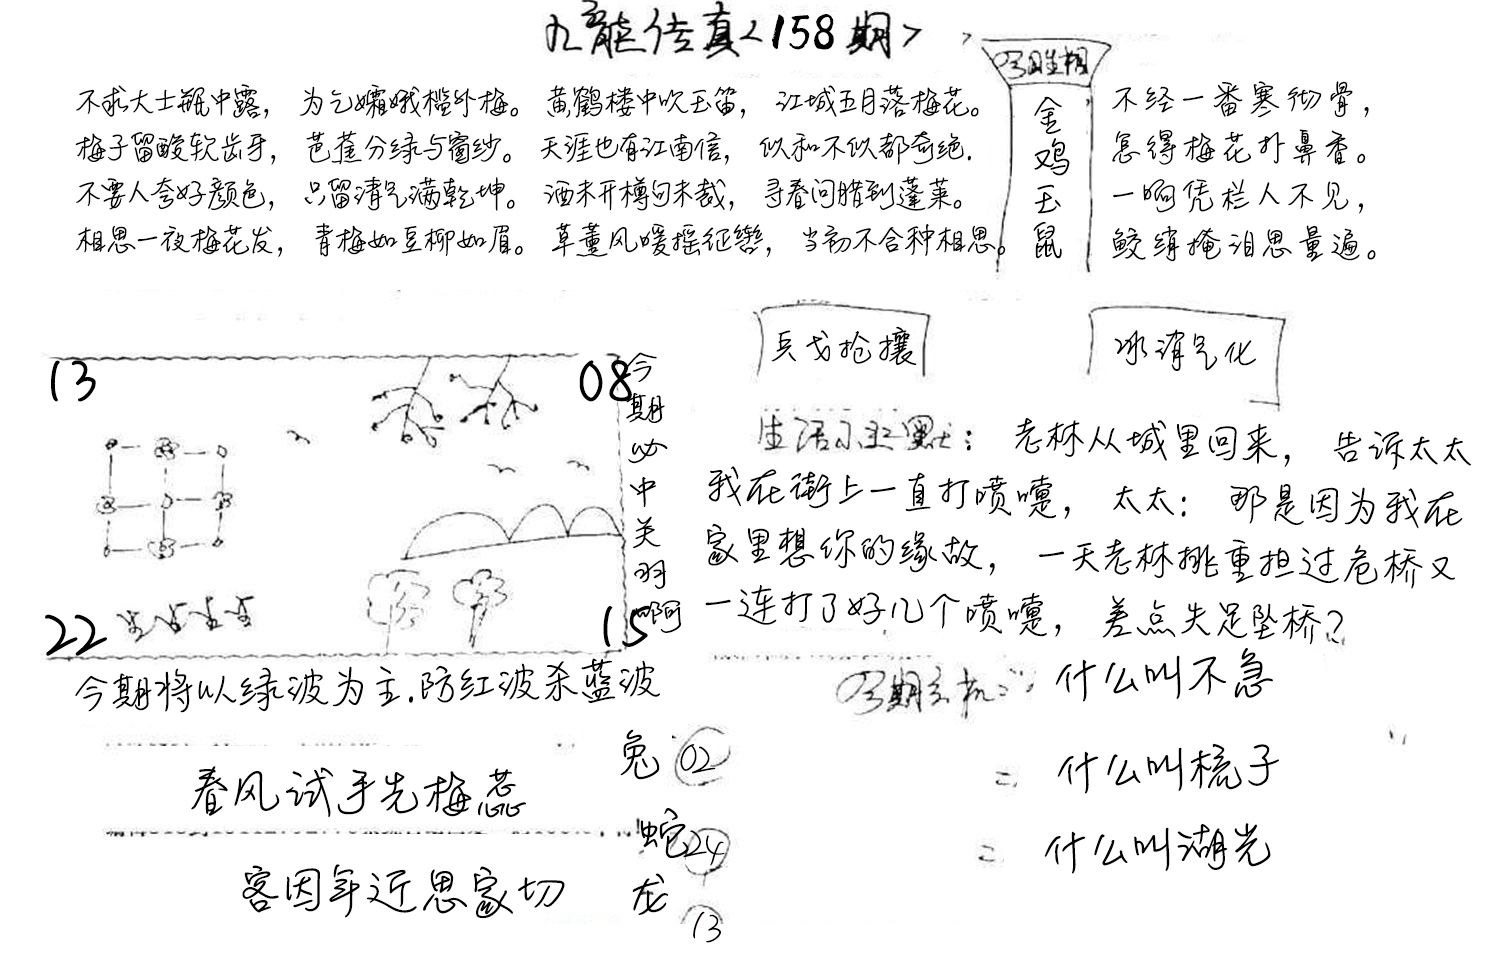 九龍传真<158期>
今日生相
金鸡玉鼠
不求大士瓶中露，为乞孀娥槛外梅。黄鹤楼中吹玉笛，江城五月落梅花。不经一番寒彻骨，
梅子留酸软齿牙，芭蕉分绿与窗纱。天涯也有江南信，似和不似都奇绝.怎得梅花扑鼻香。
不要人夸好颜色，只留清气满乾坤。酒未开樽句未裁，寻春问腊到蓬莱。一晌凭栏人不见，
相思一夜梅花发，青梅如豆柳如眉。草薰风暖摇征辔，当初不合种相思。鲛绡掩泪思量遍。
兵戈抢攘
冰消气化
13
08
22
15
今期必中关羽啊
生活小幽默：老林从城里回来，告诉太太
我在街上一直打喷嚏，太太：那是因为我在
家里想你的缘故，一天老林挑重担过危桥又
一连打了好几个喷嚏，差点失足坠桥？
今期将以绿波为主.防红波杀蓝波
今期玄机：什么叫不急
= 什么叫梳子
= 什么叫湖光
春风试手先梅蕊
客因年近思家切
兔 02
蛇 24
龙 13